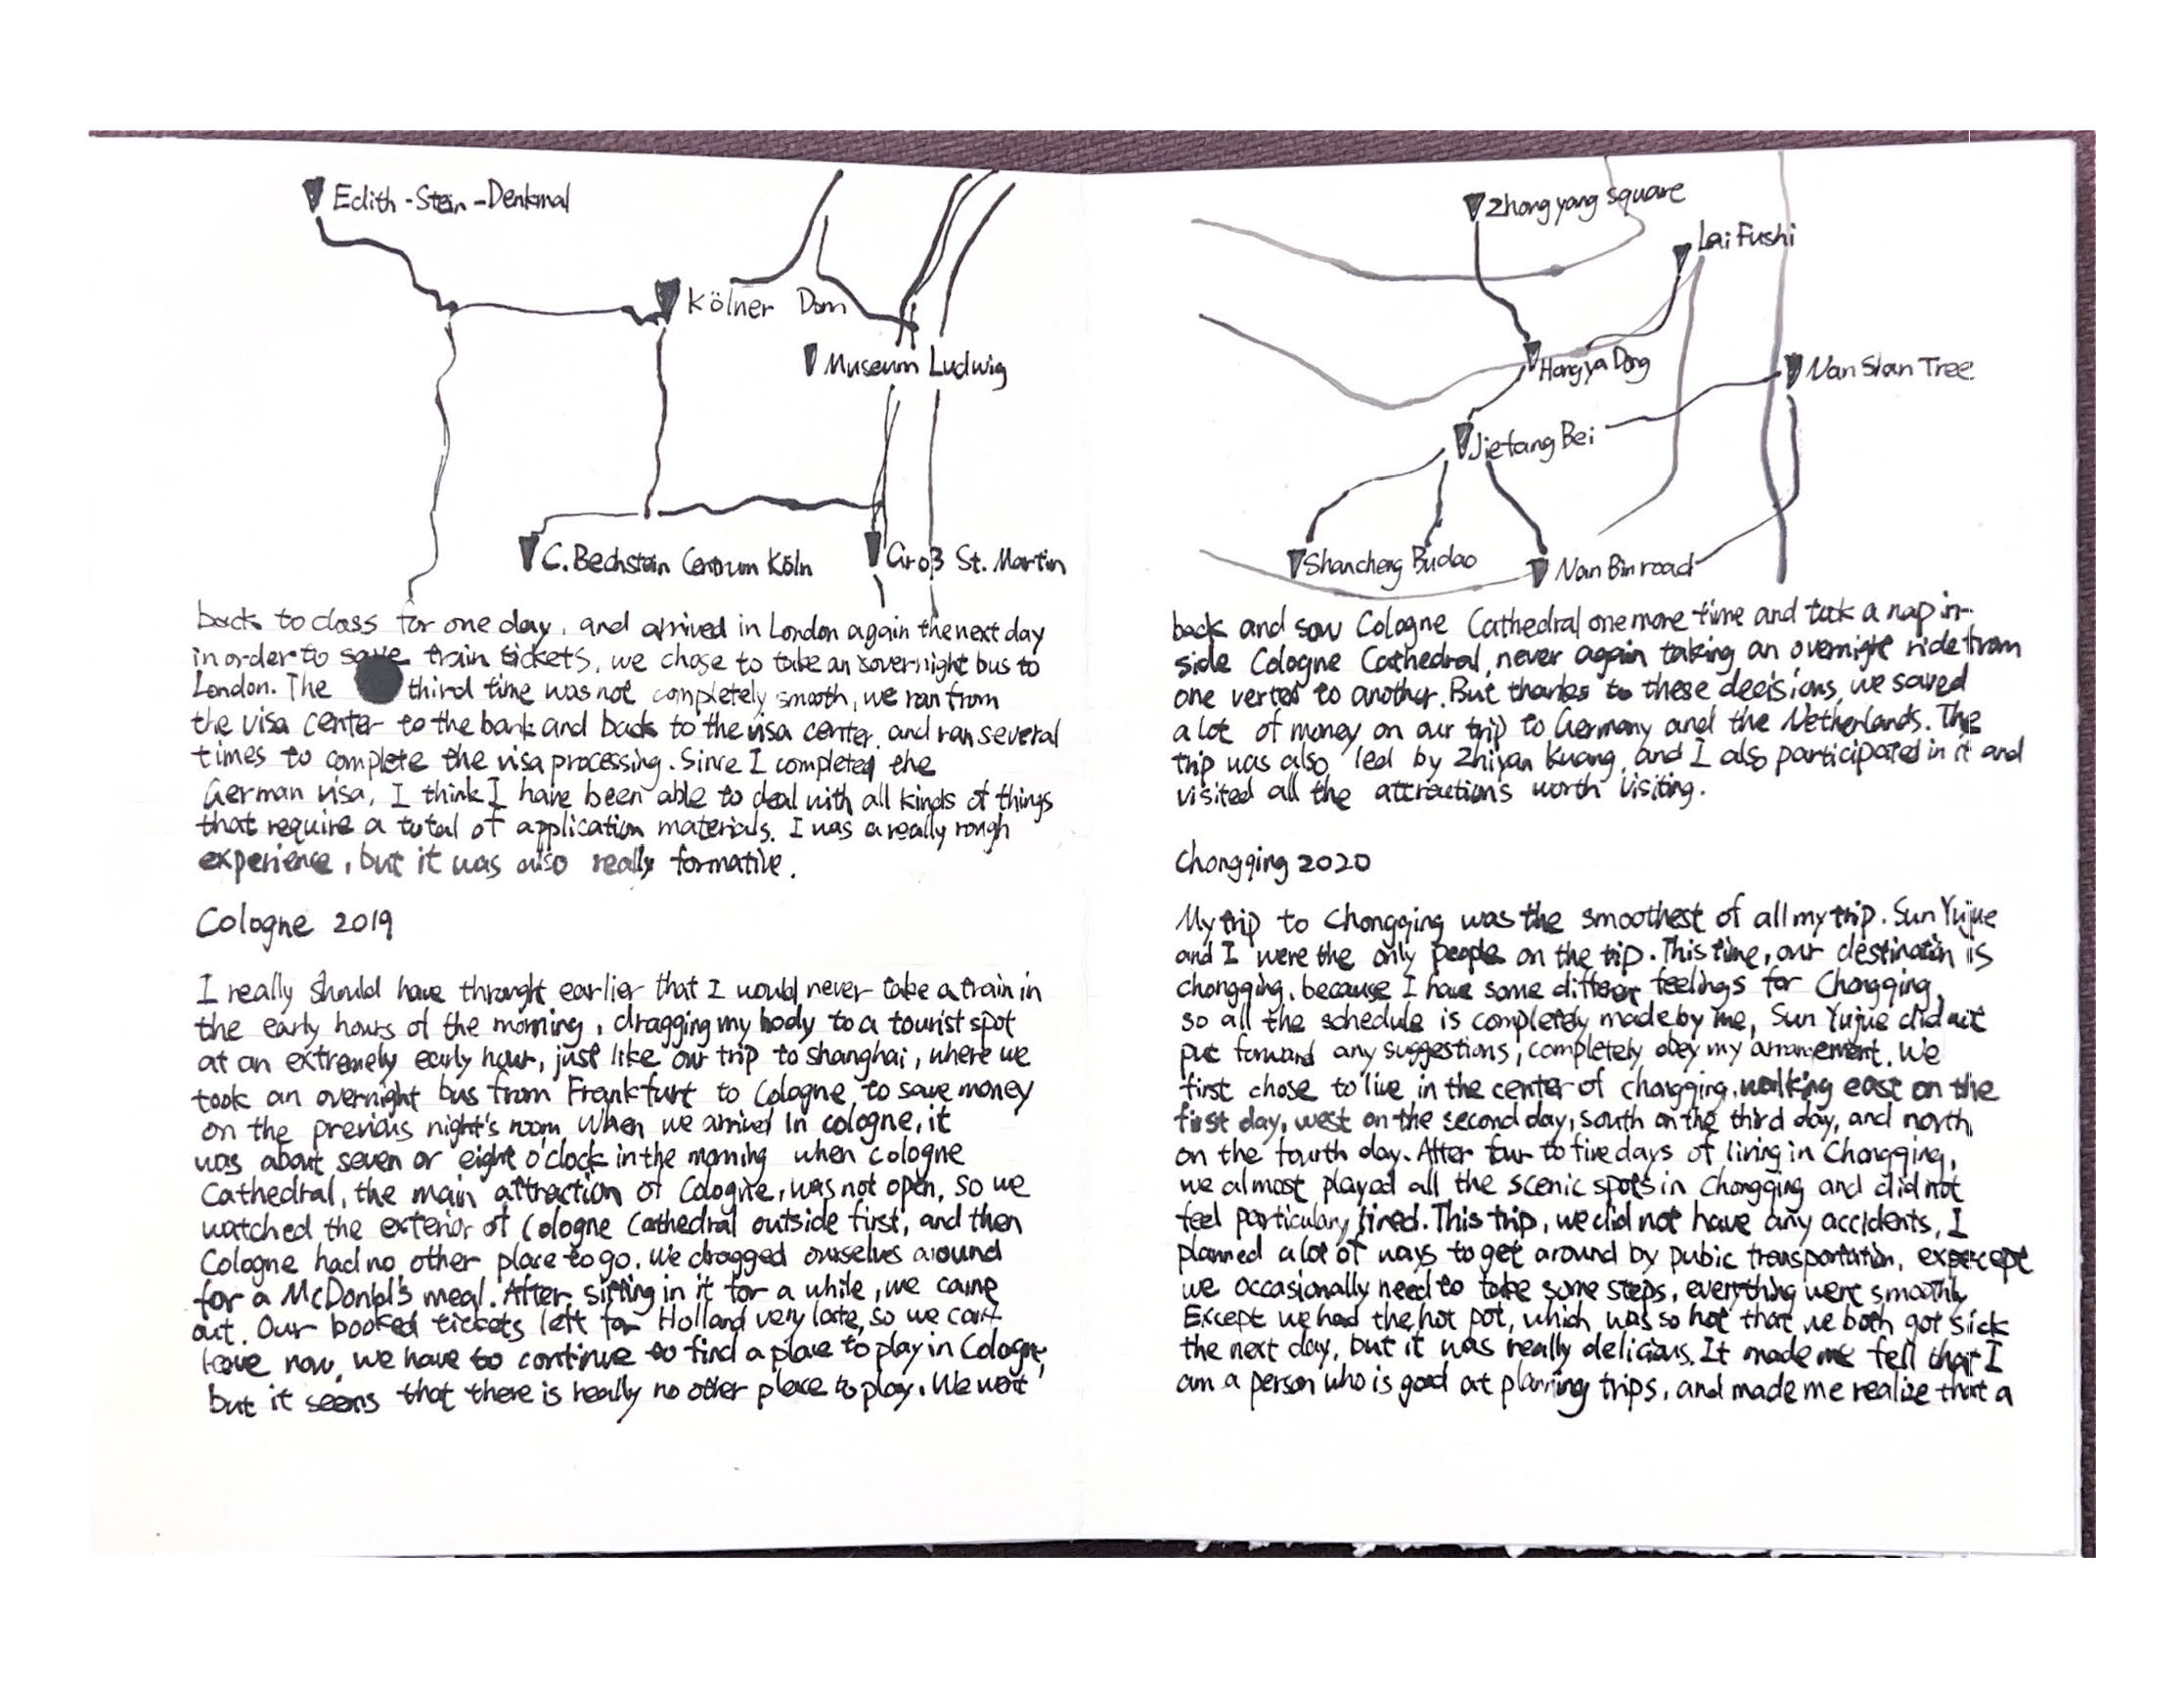 Edith-Stein-Denkmal
Kölner Dom
Museum Ludwig
C. Bechstein Centrum Köln
Groß St. Martin
back to class for one day, and arrived in London again the next day
in order to save train tickets, we chose to take an overnight bus to
London. The third time was not completely smooth, we ran from
the visa center to the bank and back to the visa center, and ran several
times to complete the visa processing. Since I completed the
German visa, I think I have been able to deal with all kinds of things
that require a total of application materials. I was a really rough
experience, but it was also really formative.
Cologne 2019
I really should have throught earlier that I would never take a train in
the early hours of the morning, dragging my body to a tourist spot
at an extremely early hour, just like our trip to shanghai, where we
took an overnight bus from Frankfurt to Cologne, to save money
on the previous night's room. When we arrived in cologne, it
was about seven or eight o'clock in the morning when cologne
Cathedral, the main attraction of Cologne, was not open, so we
watched the exterior of Cologne Cathedral outside first, and then
Cologne had no other place to go. We dragged ourselves around
for a McDonld's meal. After sitting in it for a while, we came
out. Our booked tickets left for Holland very late, so we can't
leave now, we have to continue to find a place to play in Cologne,
but it seems that there is really no other place to play. We went
Zhong yang square
Lai Fushi
Hongya Dong
Nan Shan Tree
Jiefang Bei
Shancheng Budao
Nan Bin road
back and saw Cologne Cathedral one more time and took a nap in-
side Cologne Cathedral, never again taking an overnight ride from
one vertex to another. But thanks to these decisions, we saved
a lot of money on our trip to Germany and the Netherlands. The
trip was also led by Zhiyan Kuang, and I also participated in it and
visited all the attractions worth visiting.
Chongqing 2020
My trip to Chongqing was the smoothest of all my trip. Sun Yujue
and I were the only people on the trip. This time, our destination is
chongqing, because I have some different feelings for Chongqing,
so all the schedule is completely made by me, Sun Yujue did not
put forward any suggestions, completely obey my arrangement. We
first chose to live in the center of chongqing, walking east on the
first day, west on the second day, south on the third day, and north
on the fourth day. After four to five days of living in Chongqing,
we almost played all the scenic spots in Chongqing and did not
feel particulary tired. This trip, we did not have any accidents, I
planned a lot of ways to get around by pubic transportation, except
we occasionally need to take some steps, everything went smoothly
Except we had the hot pot, which was so hot that we both got sick
the next day, but it was really delicious. It made me fell that I
am a person who is good at planning trips, and made me realize that a